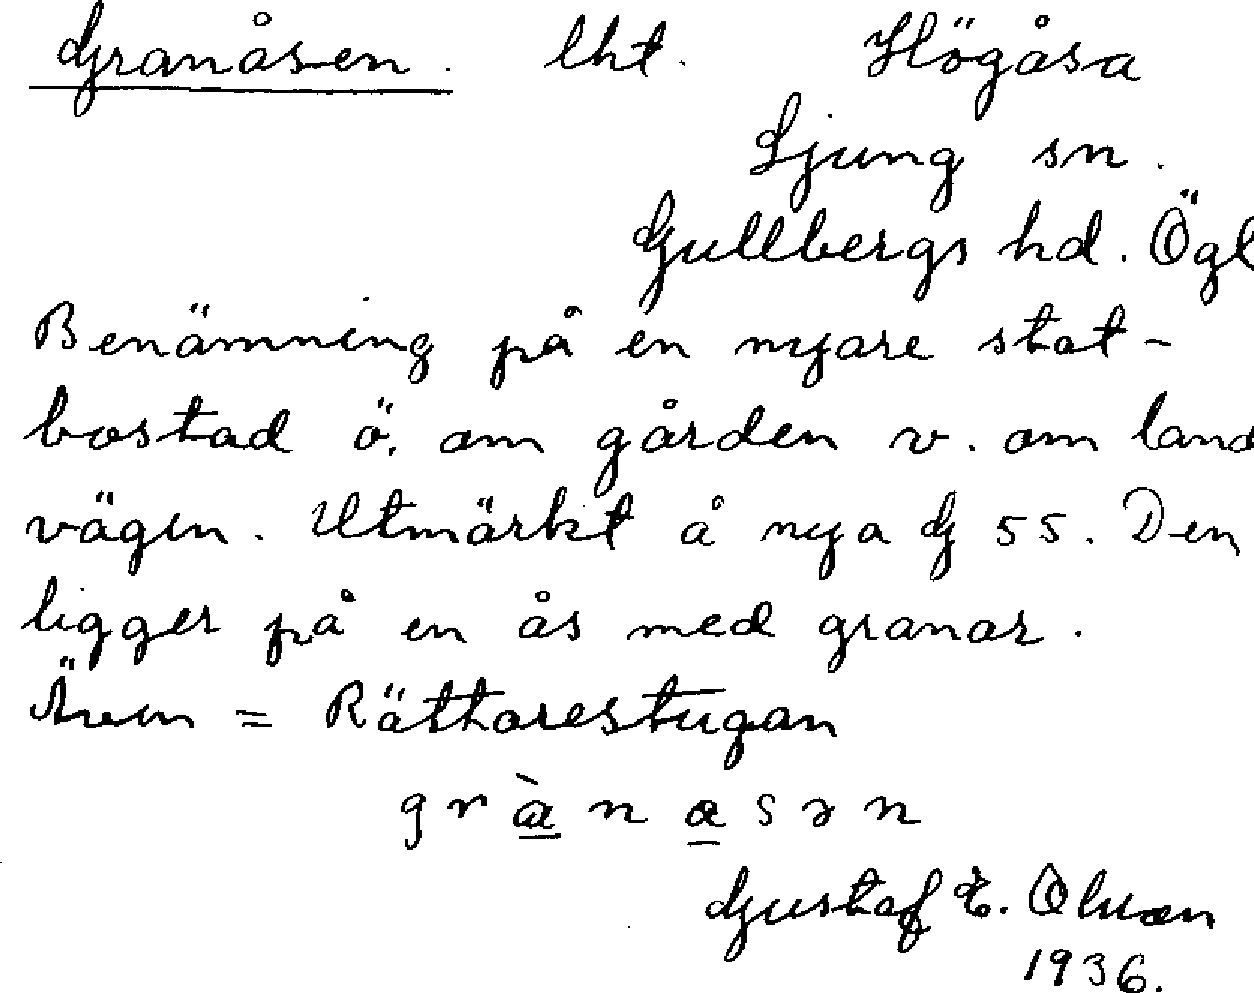 Granåsen. lht. Högåsa
Ljung sn.
Gullbergs hd. Ögl
Benämning på en nyare stat-
bostad ö. om gården v. om land
vägen. Utmärkt å nya G 55. Den
ligger på en ås med granar.
Även = Rättarestugan
grànasən
Gustaf E. Olsson
1936.